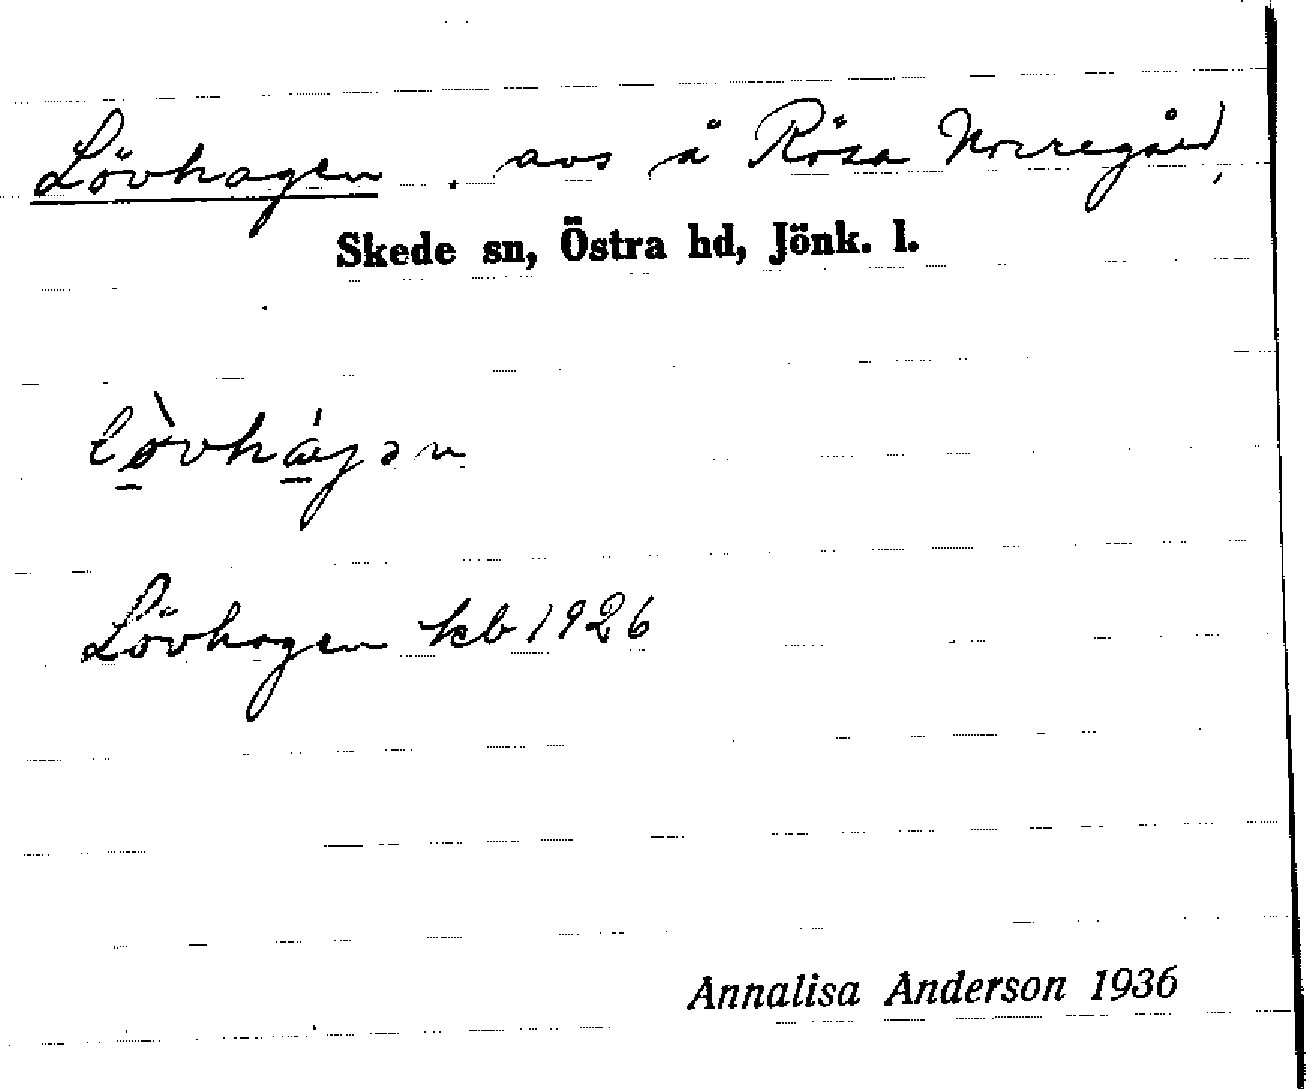 Lövhagen. avs å Rösa Norregård,
Skede sn, Östra hd, Jönk. l.
lø̀vhágən
Lövhagen kb 1926
Annalisa Anderson 1936